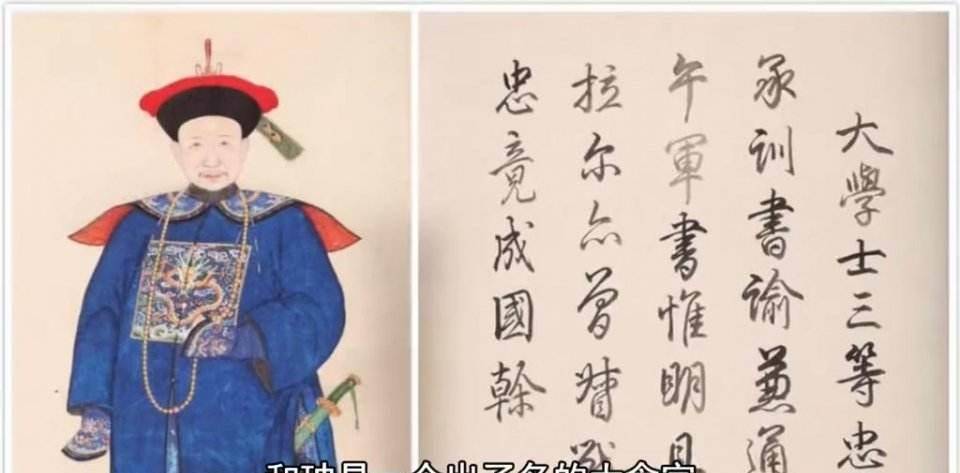 大學士三等忠
承訓書諭兼通
午軍書惟明且
拉尔亦曾督戰
忠竟成國幹
和珅是一个出了名的大贪官